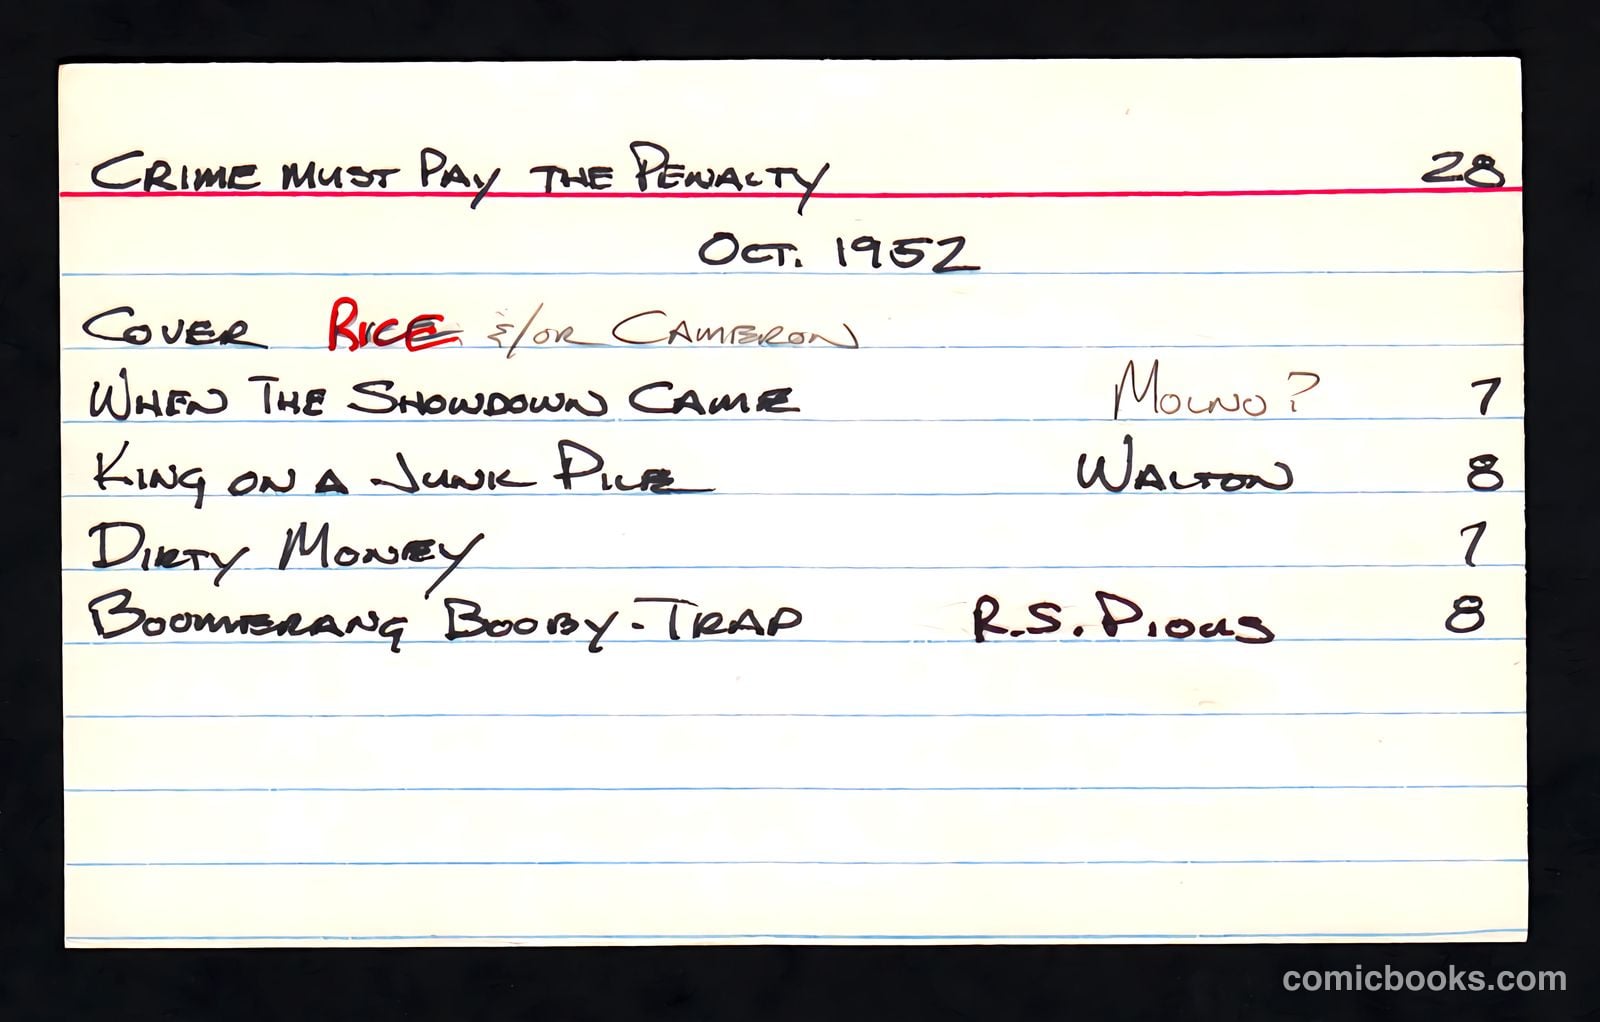 CRIME MUST PAY THE PENALTY 28
OCT. 1952
COVER RICE &/OR CAMERON
WHEN THE SHOWDOWN CAME MOLNO? 7
KING ON A JUNK PILE WALTON 8
DIRTY MONEY 7
BOOMERANG BOOBY-TRAP R.S. PIOUS 8
comicbooks.com